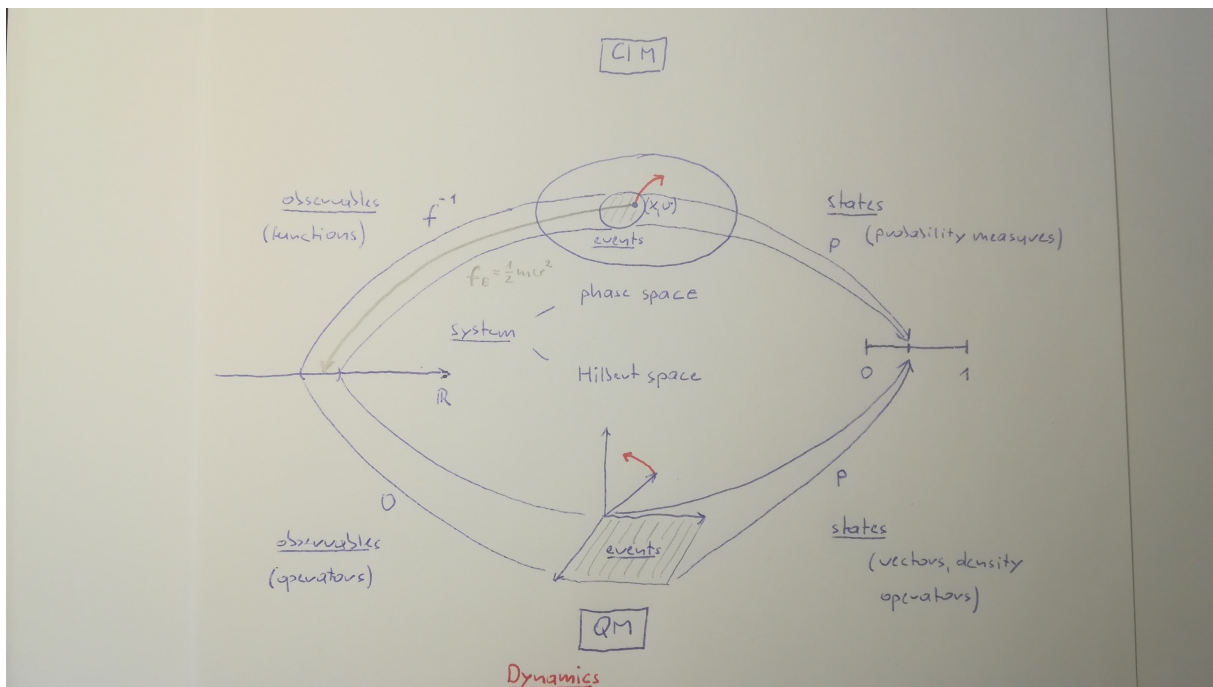 Cl M
observables
(functions)
f⁻¹
(x,v)
events
states
p (probability measures)
f_E = ½ mv²
phase space
system
0 1
Hilbert space
ℝ
O
p
observables
(operators)
events
states
(vectors, density
operators)
QM
Dynamics